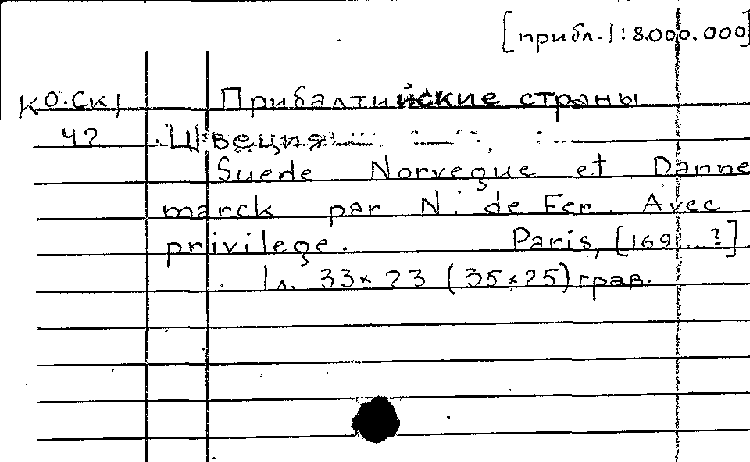 [прибл. 1:8.000.000]
КО.Ск1 Прибалтийские страны
42 Швеция
Suede Norvegue et Danne
marck par N. de Fer. Avec
privilege. Paris, [169...?]
1 л. 33×23 (35×25) грав.